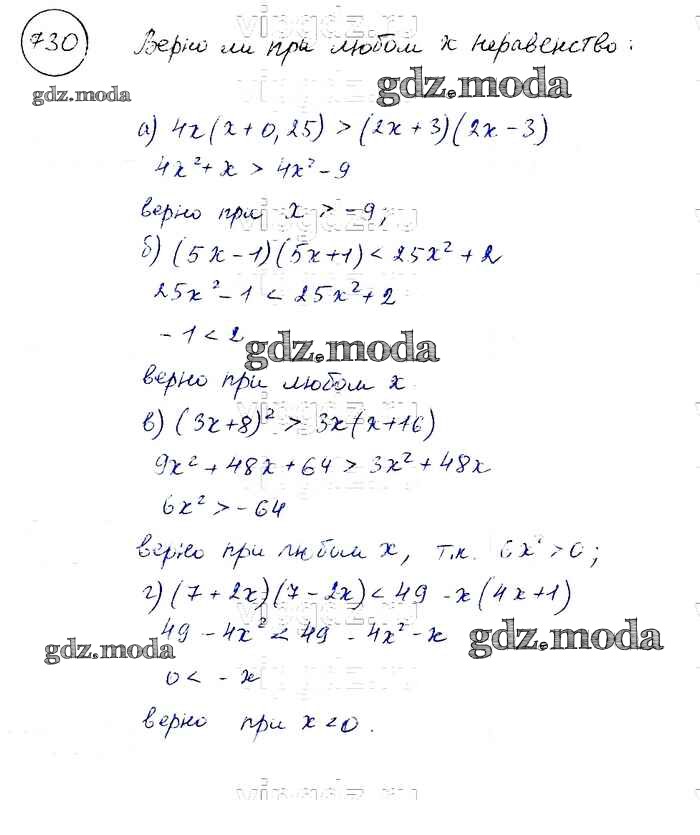 vipgdz.ru
730 Верно ли при любом x неравенство:
gdz.moda gdz.moda
а) 4x(x+0,25) > (2x+3)(2x-3)
4x²+x > 4x²-9
верно при x > -9;
vipgdz.ru
б) (5x-1)(5x+1) < 25x²+2
25x²-1 < 25x²+2
-1 < 2
gdz.moda
верно при любом x
vipgdz.ru
в) (3x+8)² > 3x(x+16)
9x²+48x+64 > 3x²+48x
6x² > -64
верно при любом x, т.к. 6x² > 0;
г) (7+2x)(7-2x) < 49 -x(4x+1)
vipgdz.ru
49 - 4x² < 49 - 4x² - x
gdz.moda gdz.moda
0 < -x
верно при x < 0.
vipgdz.ru